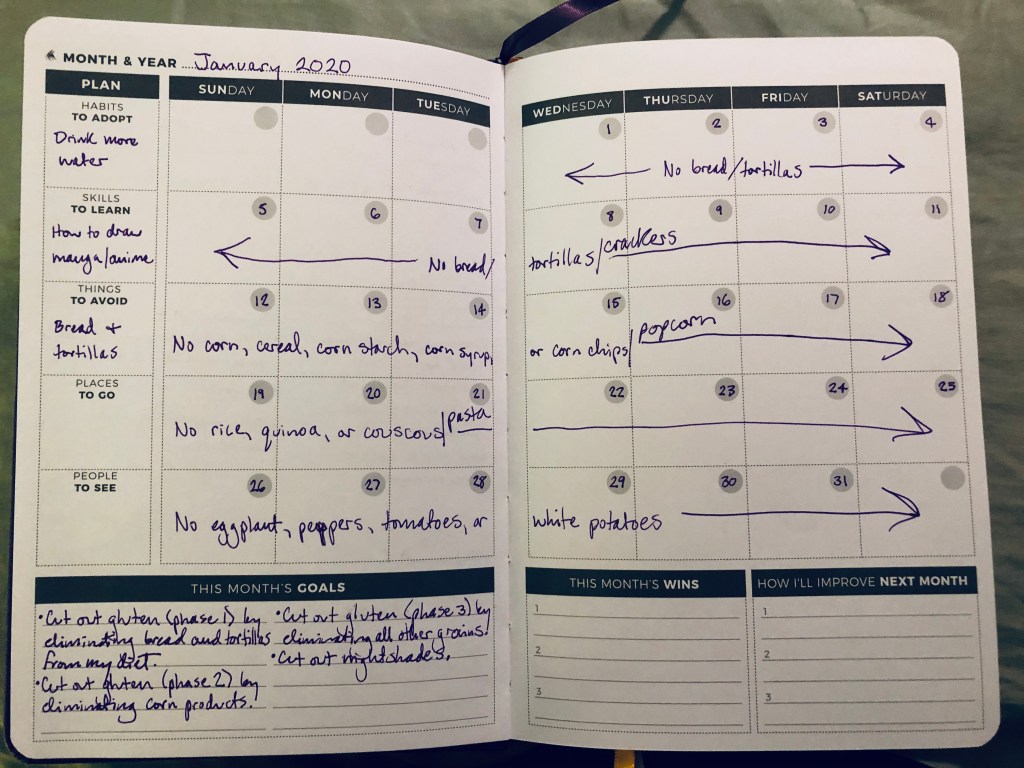 MONTH & YEAR January 2020
PLAN
SUNDAY MONDAY TUESDAY WEDNESDAY THURSDAY FRIDAY SATURDAY
HABITS
TO ADOPT
Drink more
water
1 2 3 4
No bread/tortillas
SKILLS
TO LEARN
How to draw
manga/anime
5 6 7 8 9 10 11
No bread/ tortillas/crackers
THINGS
TO AVOID
Bread +
tortillas
12 13 14 15 16 17 18
No corn, cereal, corn starch, corn syrup, or corn chips/popcorn
PLACES
TO GO
19 20 21 22 23 24 25
No rice, quinoa, or couscous/pasta
PEOPLE
TO SEE
26 27 28 29 30 31
No eggplant, peppers, tomatoes, or white potatoes
THIS MONTH'S GOALS
•Cut out gluten (phase 1) by
eliminating bread and tortillas
from my diet.
•Cut out gluten (phase 2) by
eliminating corn products.
•Cut out gluten (phase 3) by
eliminating all other grains.
•Cut out nightshades.
THIS MONTH'S WINS
1
2
3
HOW I'LL IMPROVE NEXT MONTH
1
2
3